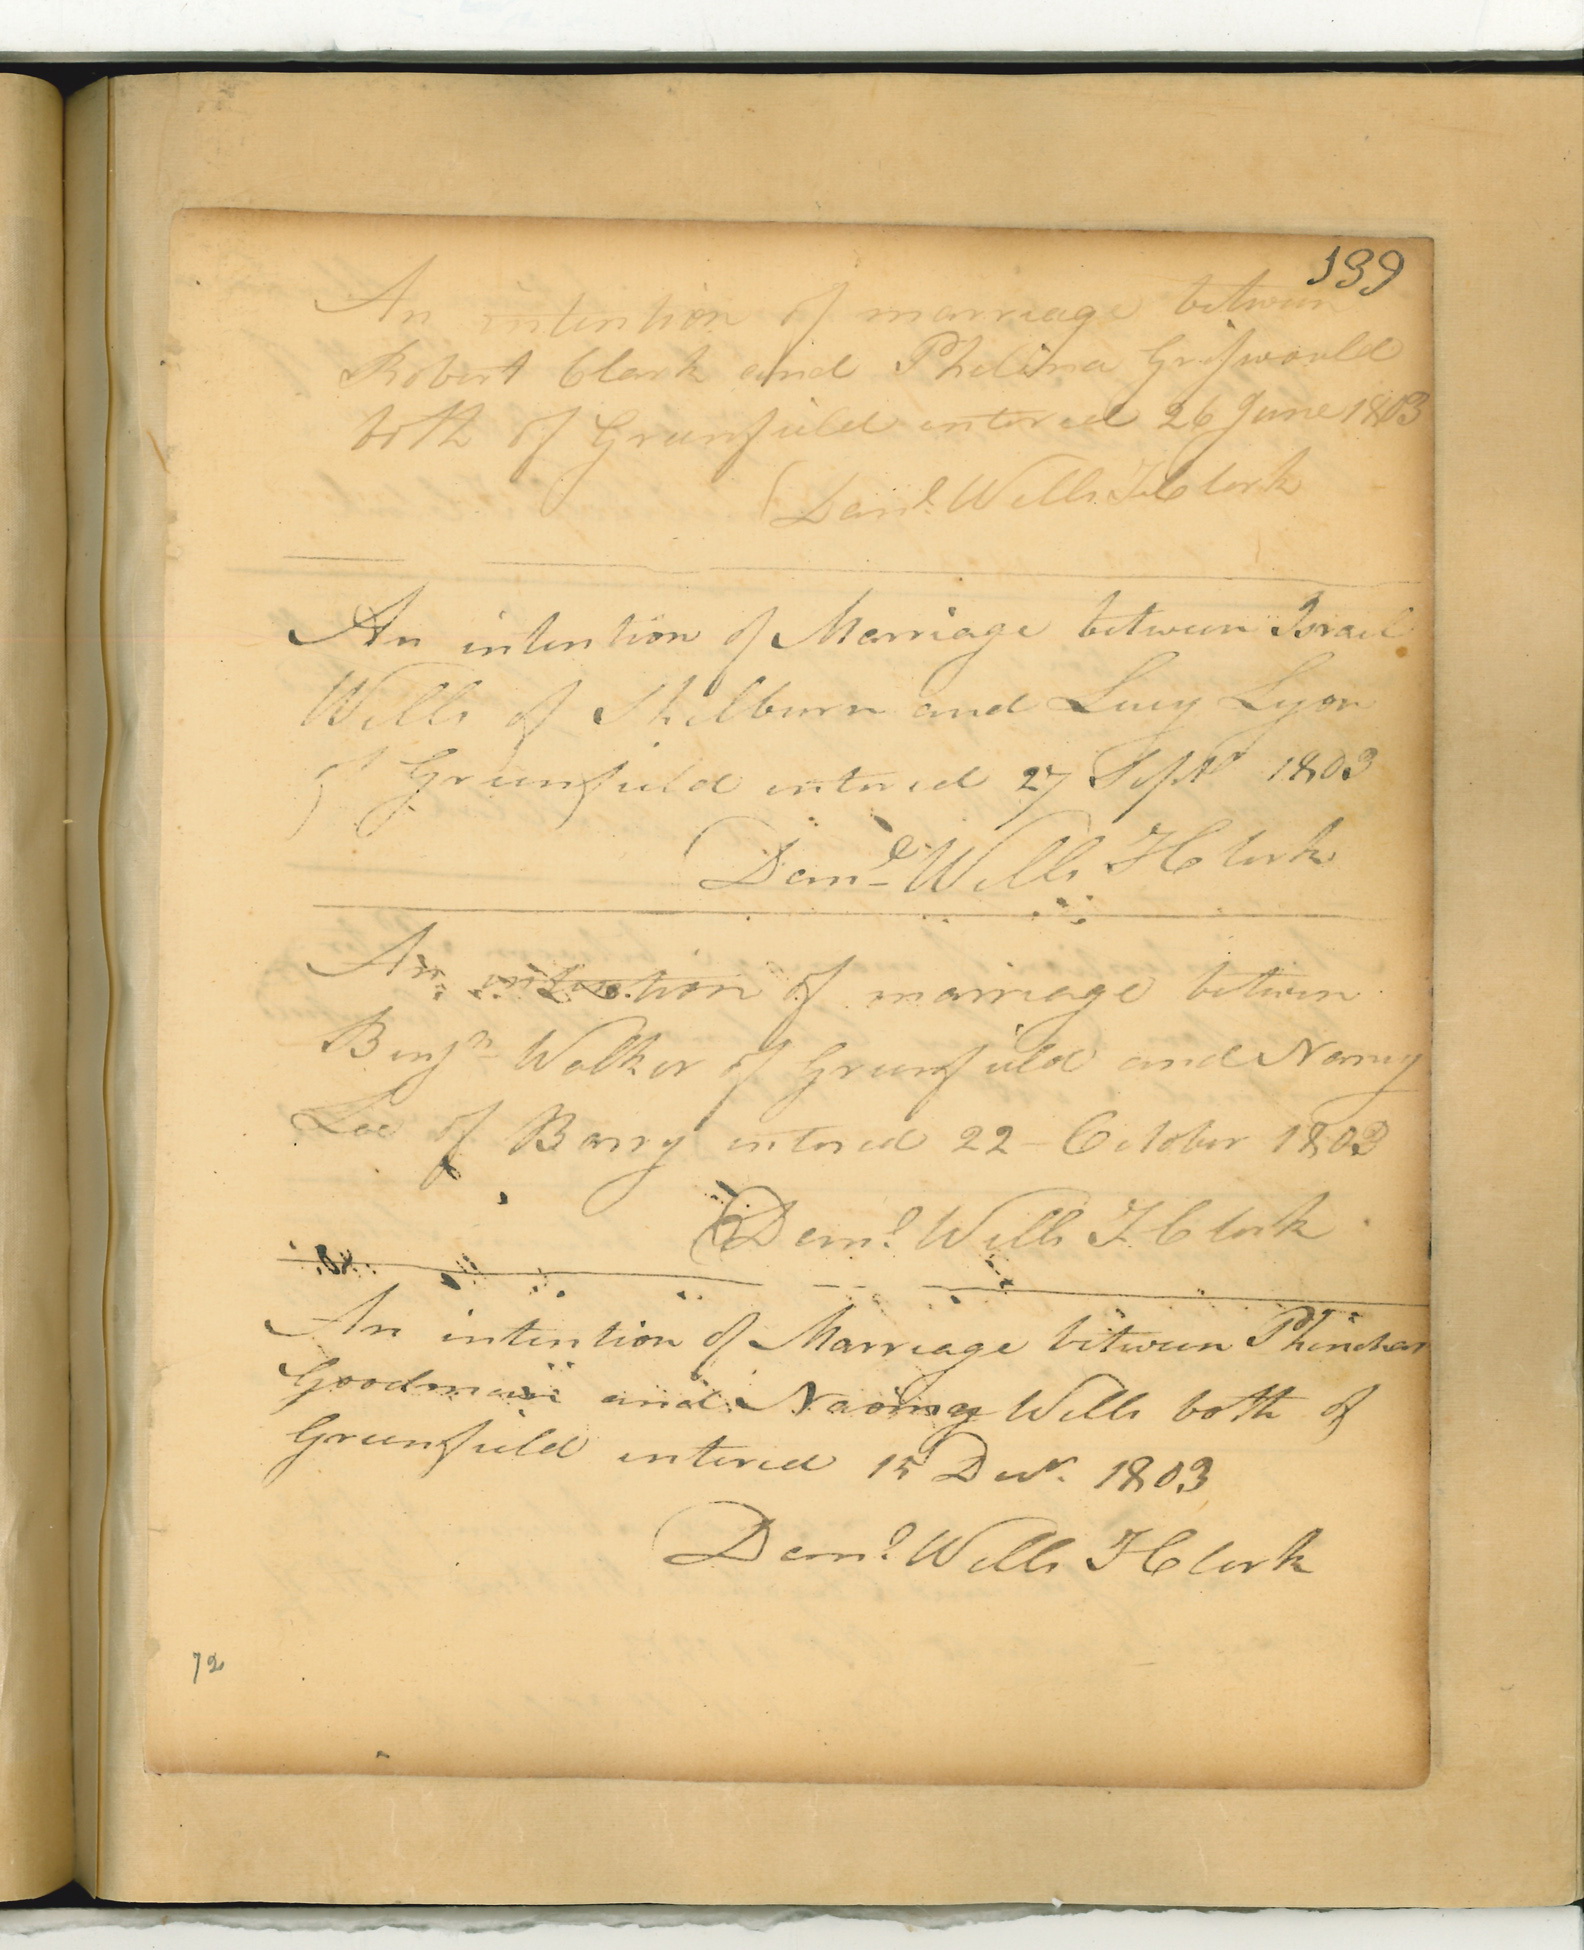 139
An intention of marriage between
Robert Clark and Phelina Griswould
both of Greenfield entered 26 June 1803
Danl. Wells T Clerk
An intention of Marriage between Israel
Wells of Shelburn and Lucy Lyon
of Greenfield entered 27 Septr 1803
Danl Wells T Clerk
An intention of marriage between
Benjn Walker of Greenfield and Nancy
Lee of Barry entered 22 October 1803
Danl. Wells T Clerk
An intention of Marriage between Phinehas
Goodman and Naomy Wells both of
Greenfield entered 15 Decr. 1803
Danl. Wells T Clerk
72